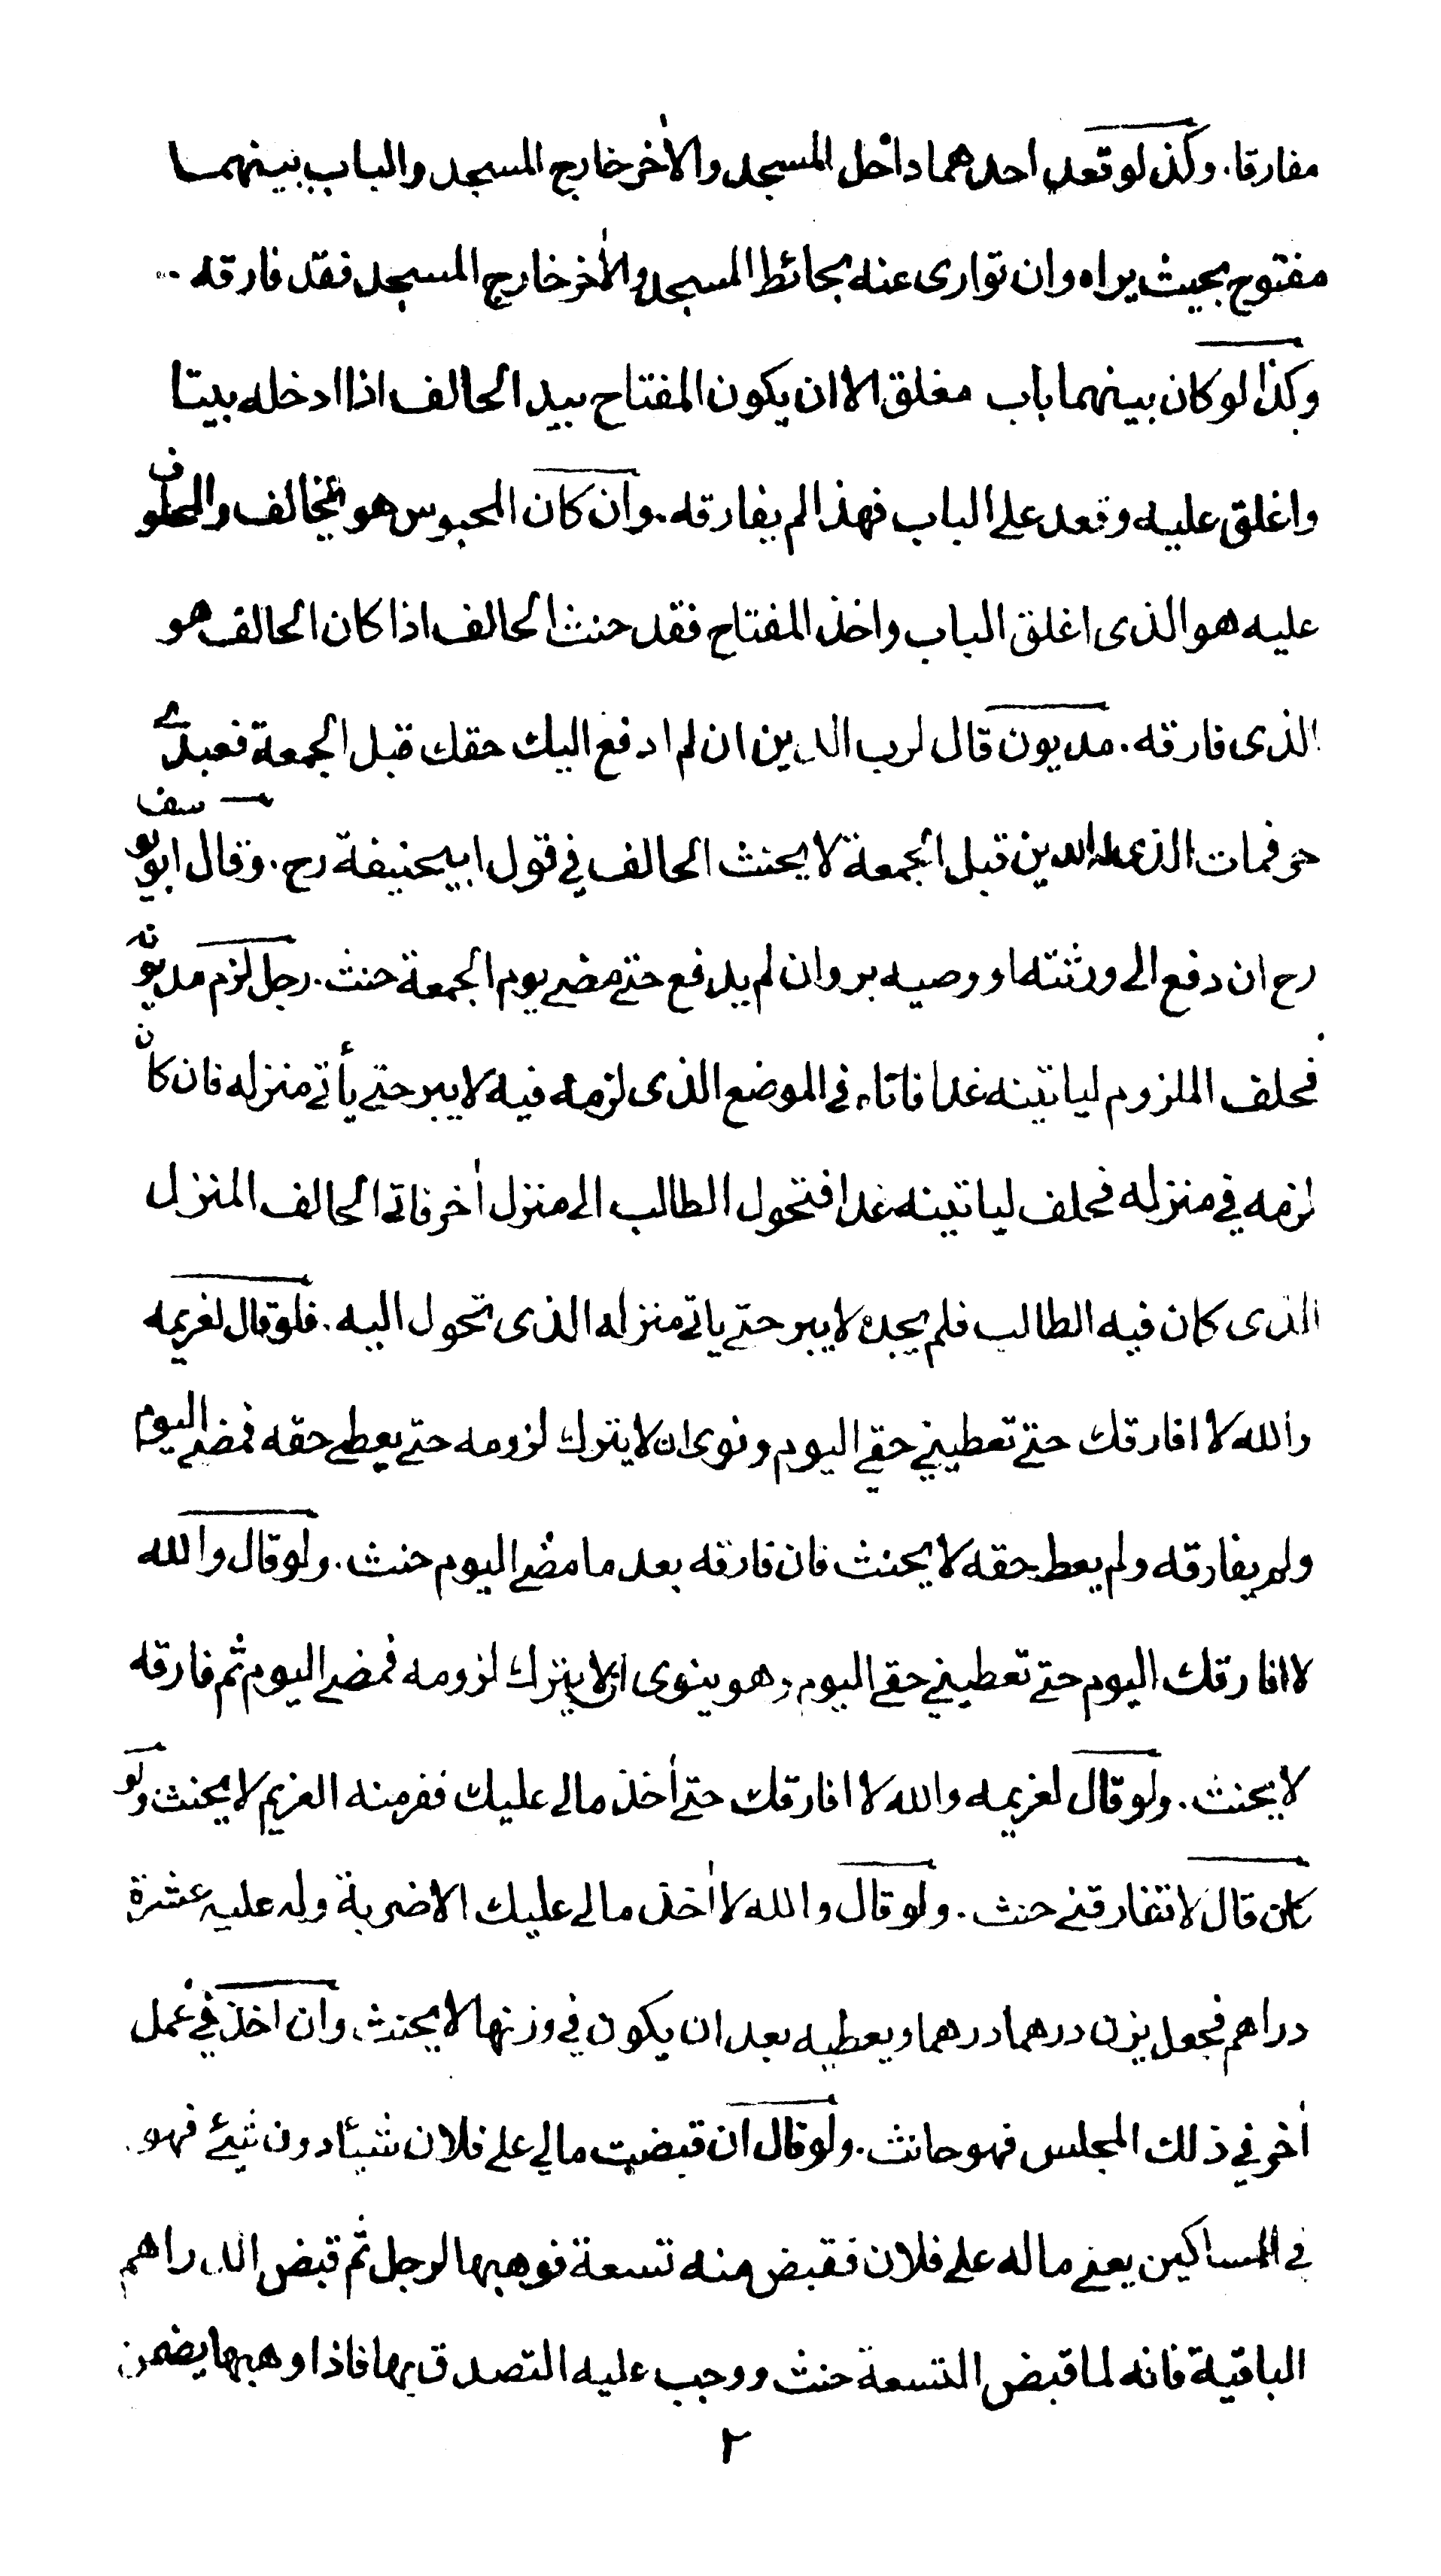 مفارقا. وكذا لو قعد احدهما داخل المسجد والأخر خارج المسجد والباب بينهما
مفتوح بحيث يراه وان توارى عنه بحائط المسجد والأخر خارج المسجد فقد فارقه
وكذا لو كان بينهما باب مغلق الا ان يكون المفتاح بيد الحالف اذا ادخله بيتا
واغلق عليه وقعد على الباب فهذا لم يفارقه. وان كان المحبوس هو الحالف والمحلوف
عليه هو الذى اغلق الباب واخذ المفتاح فقد حنث الحالف اذا كان الحالف هو
الذى فارقه. مديون قال لرب الدين ان لم ادفع اليك حقك قبل الجمعة فعبدى
حر فمات الذى له الدين قبل الجمعة لا يحنث الحالف في قول ابيحنيفة رح. وقال ابو يوسف
رح ان دفع الى ورثته او وصيه بر وان لم يدفع حتى مضى يوم الجمعة حنث. رجل لزم مديونه
فحلف الملزوم لياتينه غدا فاتاه في الموضع الذى لزمه فيه لا يبر حتى يأتى منزله فان كان
لزمه في منزله فحلف لياتينه غدا فتحول الطالب الى منزل أخر فاتى الحالف المنزل
الذى كان فيه الطالب فلم يجده لا يبر حتى ياتى منزله الذى تحول اليه. فلو قال لغريمه
والله لا افارقك حتى تعطيني حقي اليوم ونوى ان لا يترك لزومه حتى يعطى حقه فمضى اليوم
ولم يفارقه ولم يعط حقه لا يحنث فان فارقه بعد ما مضى اليوم حنث. ولو قال والله
لا افارقك اليوم حتى تعطيني حقي اليوم وهو ينوى ان لا يترك لزومه فمضى اليوم ثم فارقه
لا يحنث. ولو قال لغريمه والله لا افارقك حتى أخذ مالى عليك ففر منه الغريم لا يحنث ولو
كان قال لا تفارقنى حنث. ولو قال والله لا أخذ مالى عليك الا ضربة وله عليه عشرة
دراهم فجعل يزن درهما درهما ويعطيه بعد ان يكون في وزنها لا يحنث وان اخذ في عمل
أخر في ذلك المجلس فهو حانث. ولو قال ان قبضت مالي على فلان شيئا دون شيئ فهو
في المساكين يعنى ماله على فلان فقبض منه تسعة فوهبها لرجل ثم قبض الدراهم
الباقية فانه لما قبض التسعة حنث ووجب عليه التصدق بها فاذا وهبها يضمن
٢